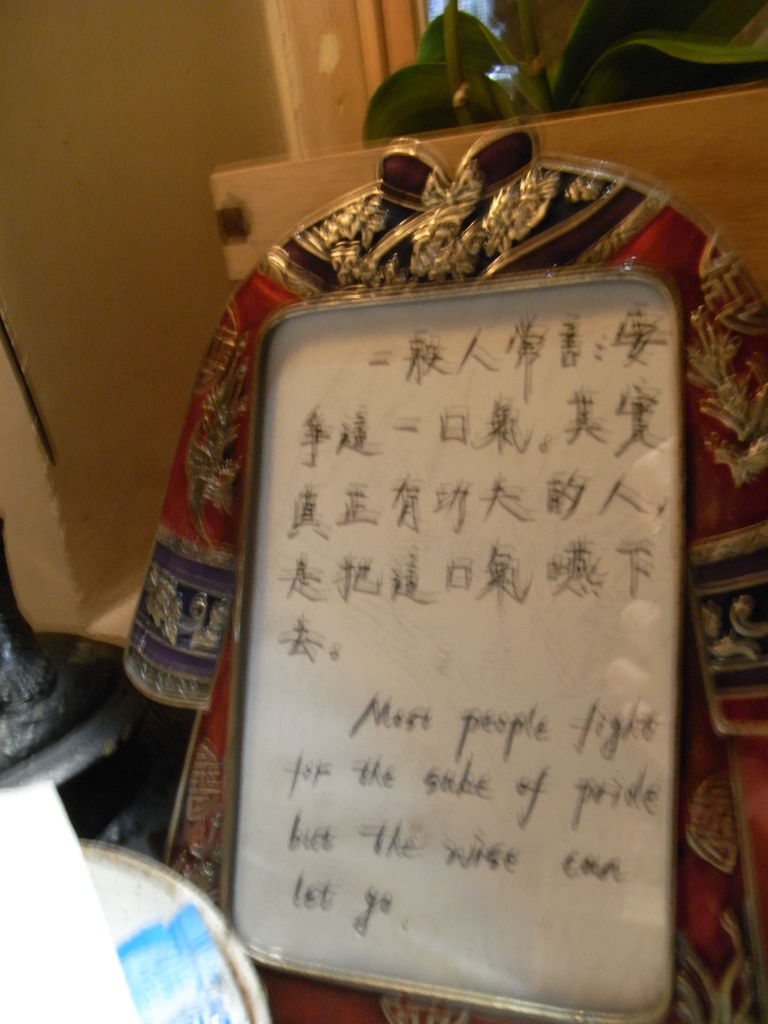 一般人常言:要
爭這一口氣。其實
真正有功夫的人,
是把這口氣嚥下
去。
Most people fight
for the sake of pride
but the wise can
let go.